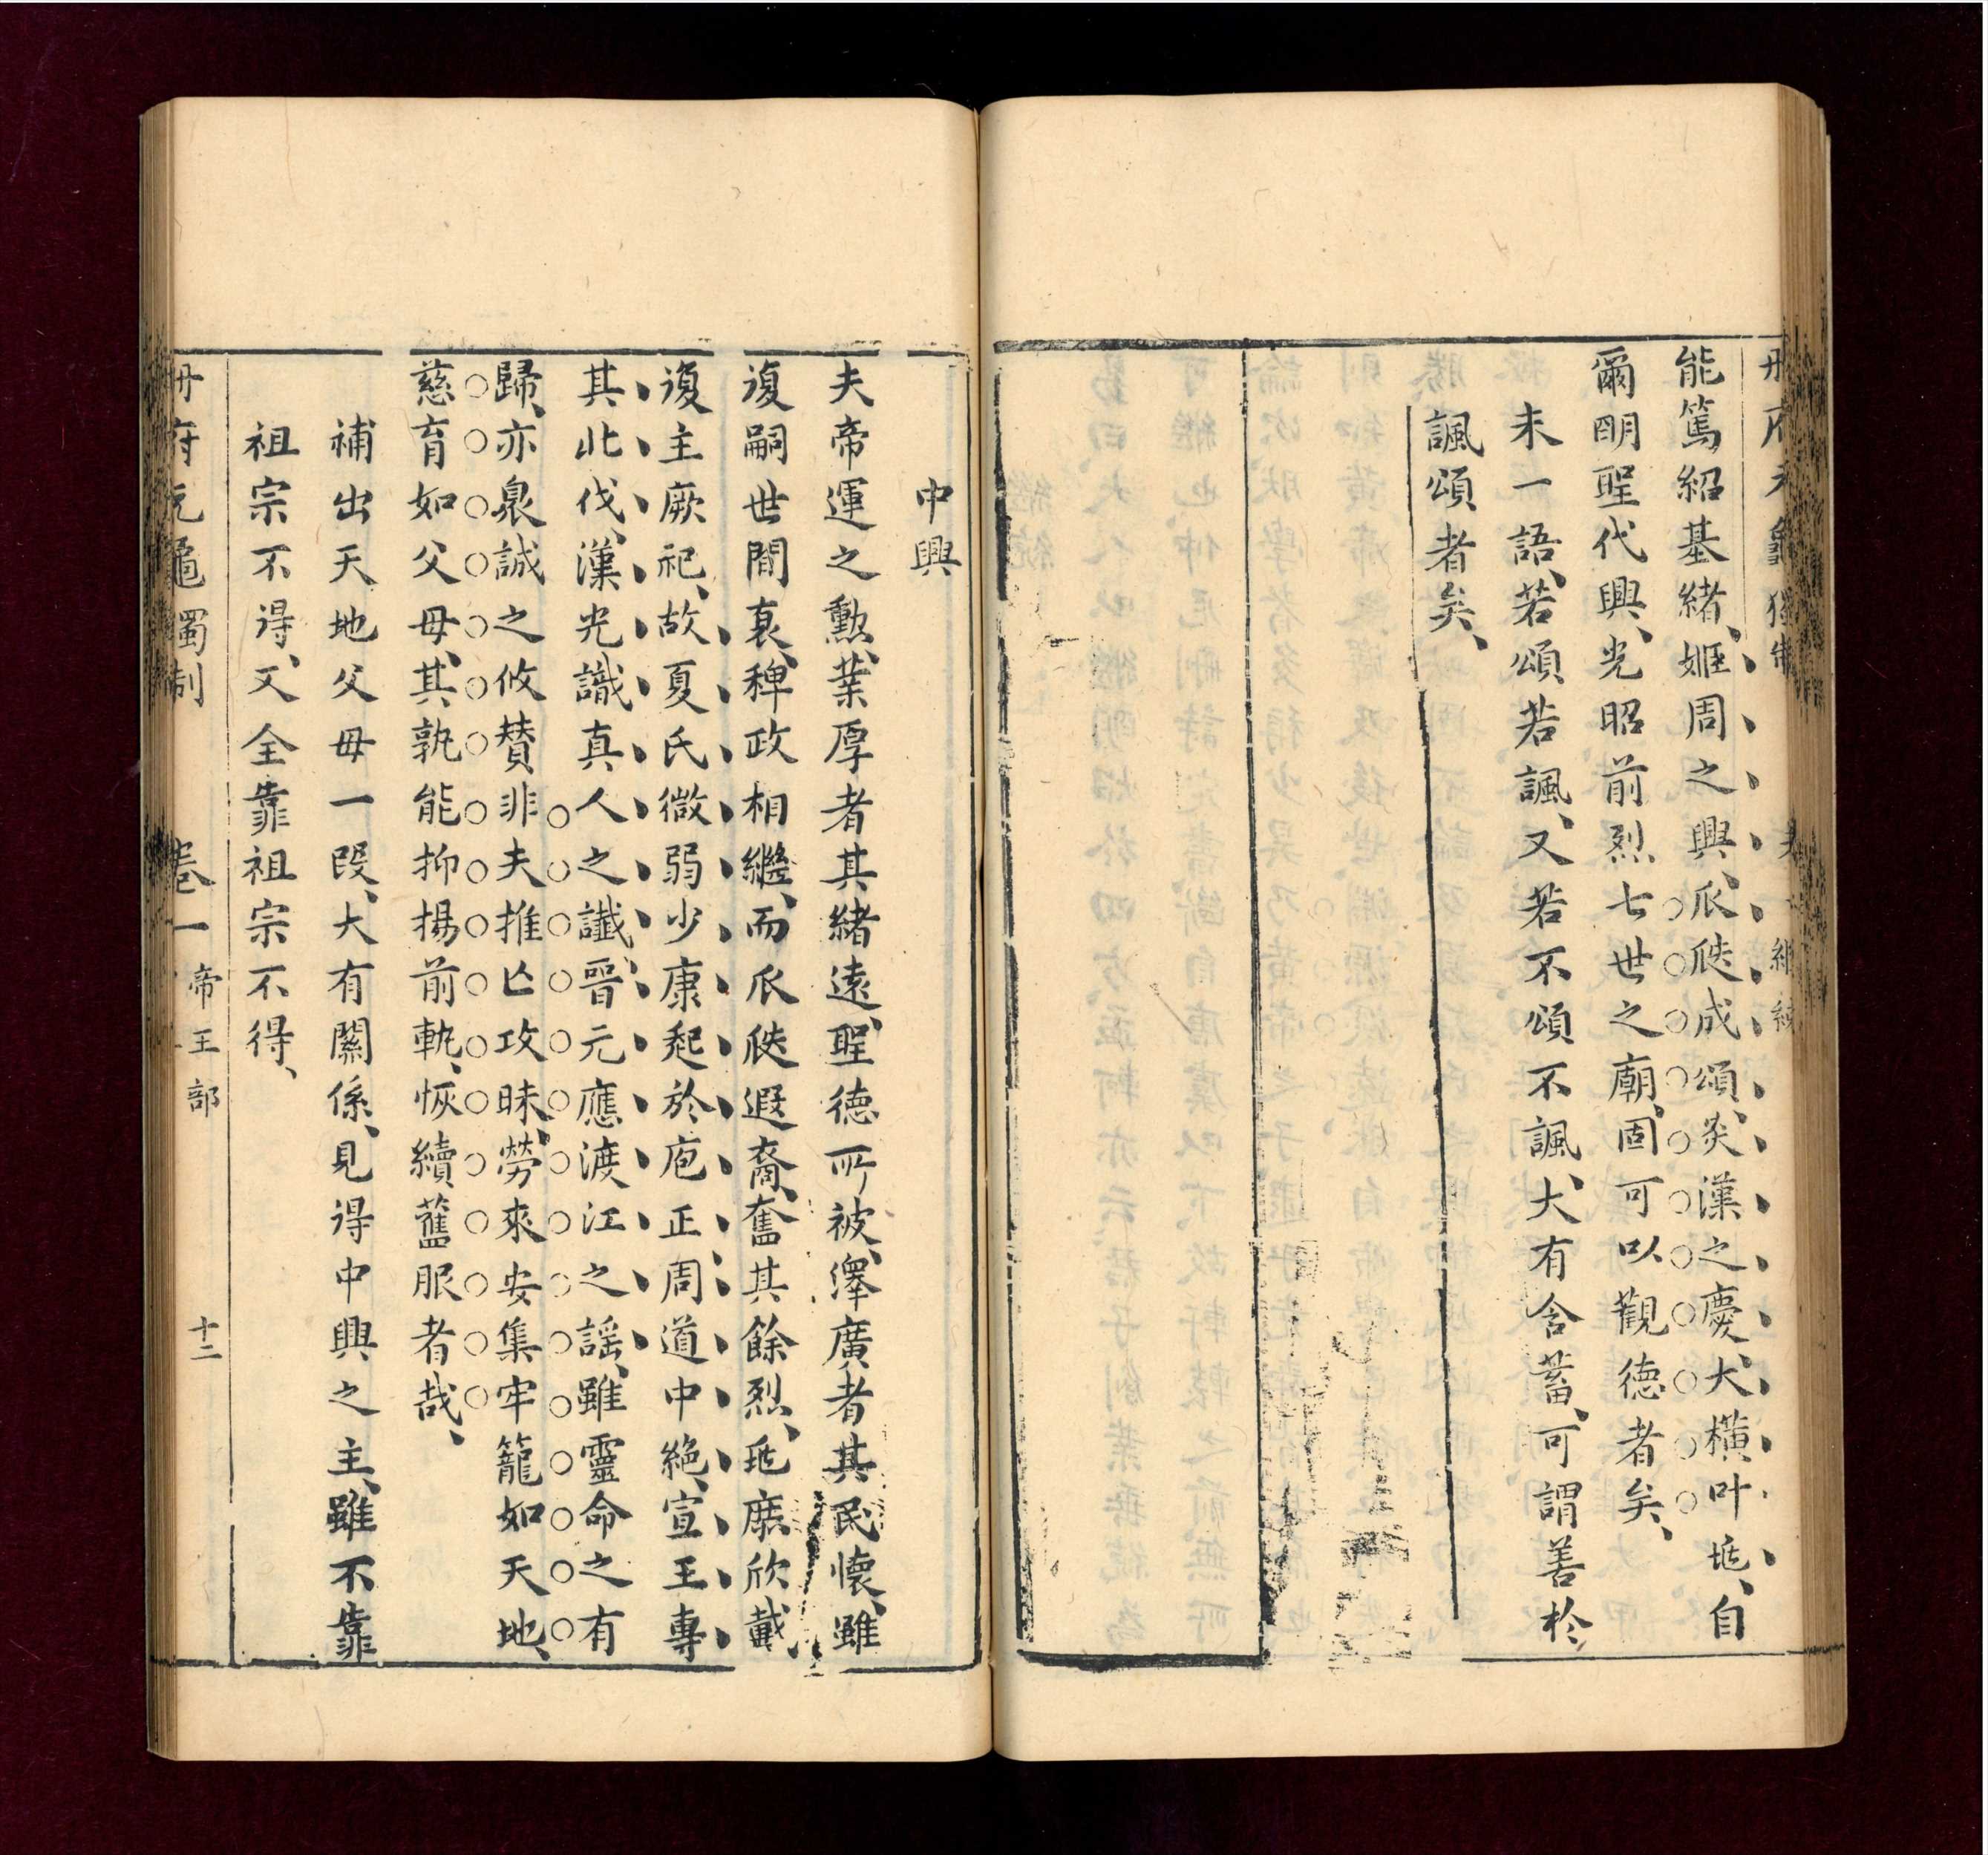 能篤紹基緒、姬周之興、瓜瓞成頌、炎漢之慶、大橫叶兆、自
爾明聖代興、光昭前烈、七世之廟、固可以觀德者矣、
末一語、若頌若諷、又若不頌不諷、大有含蓄、可謂善於
諷頌者矣、
中興
夫帝運之勲、業厚者其緒遠、聖德所被、澤廣者其民懷、雖
復嗣世間衰、稗政相繼、而瓜瓞遐裔、奮其餘烈、兆庶欣戴、
復主厥祀、故夏氏微弱、少康起於庖正、周道中絕、宣王專
其北伐、漢光識真人之讖、晉元應渡江之謠、雖靈命之有
歸、亦衆誠之攸賛、非夫推亾攻昧、勞來安集、牢籠如天地、
慈育如父母、其孰能抑揚前軌、恢續舊服者哉、
補出天地父母一段、大有關係、見得中興之主、雖不靠
祖宗不得、又全靠祖宗不得、
冊府元龜獨制 卷一 帝王部 十二